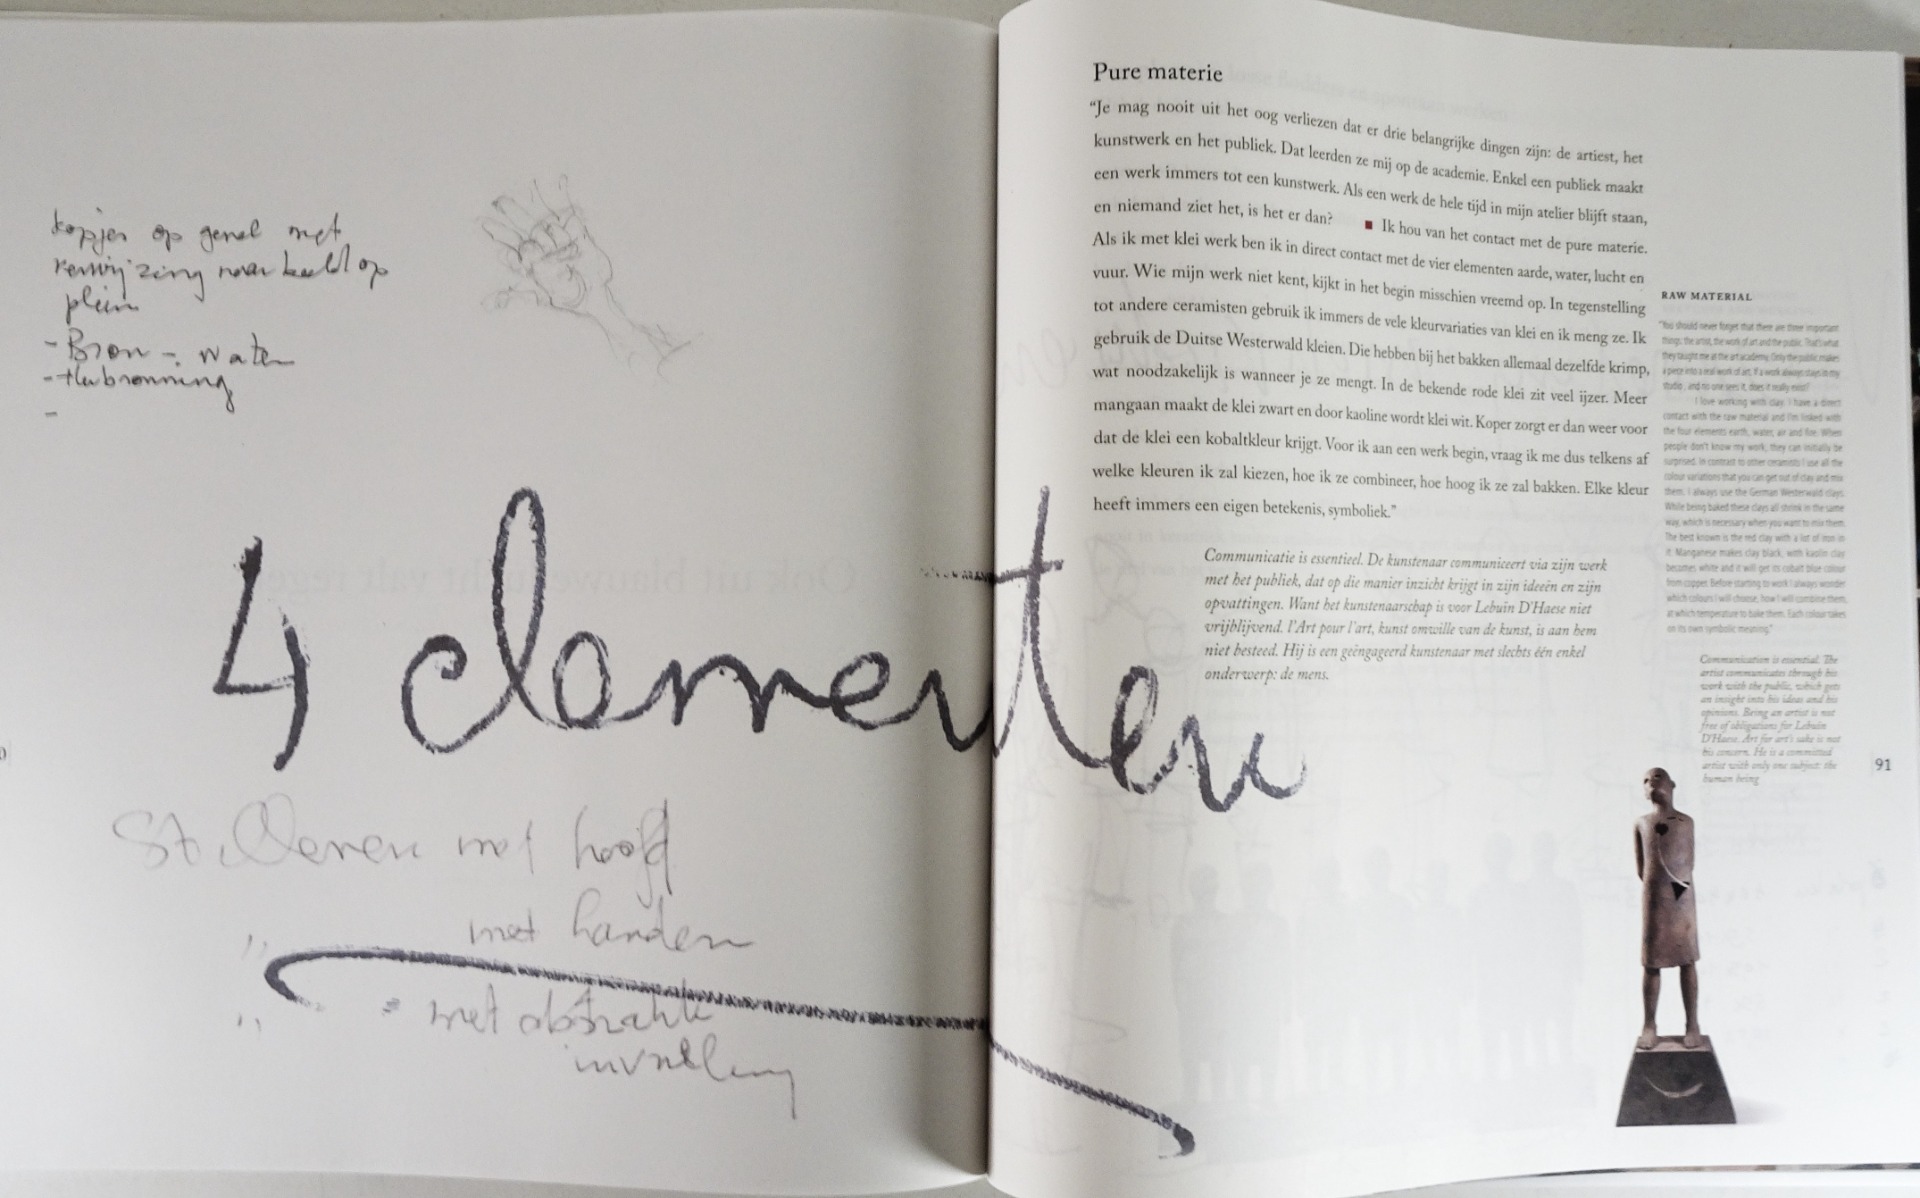 kopjes op gevel met
verwijzing naar beeld op
plein
- Bron - water
- Herbronning
-
4 elementen
Stilleven met hoofd
" met handen
" met abstrakte
invulling
Pure materie
“Je mag nooit uit het oog verliezen dat er drie belangrijke dingen zijn: de artiest, het
kunstwerk en het publiek. Dat leerden ze mij op de academie. Enkel een publiek maakt
een werk immers tot een kunstwerk. Als een werk de hele tijd in mijn atelier blijft staan,
en niemand ziet het, is het er dan? ■ Ik hou van het contact met de pure materie.
Als ik met klei werk ben ik in direct contact met de vier elementen aarde, water, lucht en
vuur. Wie mijn werk niet kent, kijkt in het begin misschien vreemd op. In tegenstelling
tot andere ceramisten gebruik ik immers de vele kleurvariaties van klei en ik meng ze. Ik
gebruik de Duitse Westerwald kleien. Die hebben bij het bakken allemaal dezelfde krimp,
wat noodzakelijk is wanneer je ze mengt. In de bekende rode klei zit veel ijzer. Meer
mangaan maakt de klei zwart en door kaoline wordt klei wit. Koper zorgt er dan weer voor
dat de klei een kobaltkleur krijgt. Voor ik aan een werk begin, vraag ik me dus telkens af
welke kleuren ik zal kiezen, hoe ik ze combineer, hoe hoog ik ze zal bakken. Elke kleur
heeft immers een eigen betekenis, symboliek.”
Communicatie is essentieel. De kunstenaar communiceert via zijn werk
met het publiek, dat op die manier inzicht krijgt in zijn ideeën en zijn
opvattingen. Want het kunstenaarschap is voor Lebuïn D'Haese niet
vrijblijvend. l'Art pour l'art, kunst omwille van de kunst, is aan hem
niet besteed. Hij is een geëngageerd kunstenaar met slechts één enkel
onderwerp: de mens.
RAW MATERIAL
“You should never forget that there are three important
things: the artist, the work of art and the public. That's what
they taught me at the art academy. Only the public makes
a piece into a real work of art. If a work always stays in my
studio , and no one sees it, does it really exist?
I love working with clay. I have a direct
contact with the raw material and I'm linked with
the four elements earth, water, air and fire. When
people don't know my work, they can initially be
surprised. In contrast to other ceramists I use all the
colour variations that you can get out of clay and mix
them. I always use the German Westerwald clays.
While being baked these clays all shrink in the same
way, which is necessary when you want to mix them.
The best known is the red clay with a lot of iron in
it. Manganese makes clay black, with kaolin clay
becomes white and it will get its cobalt blue colour
from copper. Before starting to work I always wonder
which colours I will choose, how I will combine them,
at which temperature to bake them. Each colour takes
on its own symbolic meaning.”
Communication is essential. The
artist communicates through his
work with the public, which gets
an insight into his ideas and his
opinions. Being an artist is not
free of obligations for Lebuïn
D'Haese. Art for art's sake is not
his concern. He is a committed
artist with only one subject: the
human being
91